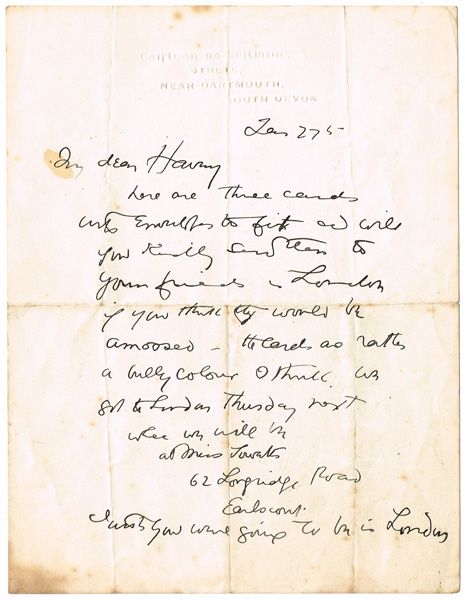 STRETE,
NEAR DARTMOUTH,
SOUTH DEVON
Jan 27th
My dear Harry
here are three cards
with Envelopes to fit and will
you kindly send them to
your friends in London
if you think they would be
amoosed – the cards are rather
a bully colour I think. We
go to London Thursday next
where we will be
at Miss
62 Longridge Road
Earlscourt.
I wish you were going to be in London